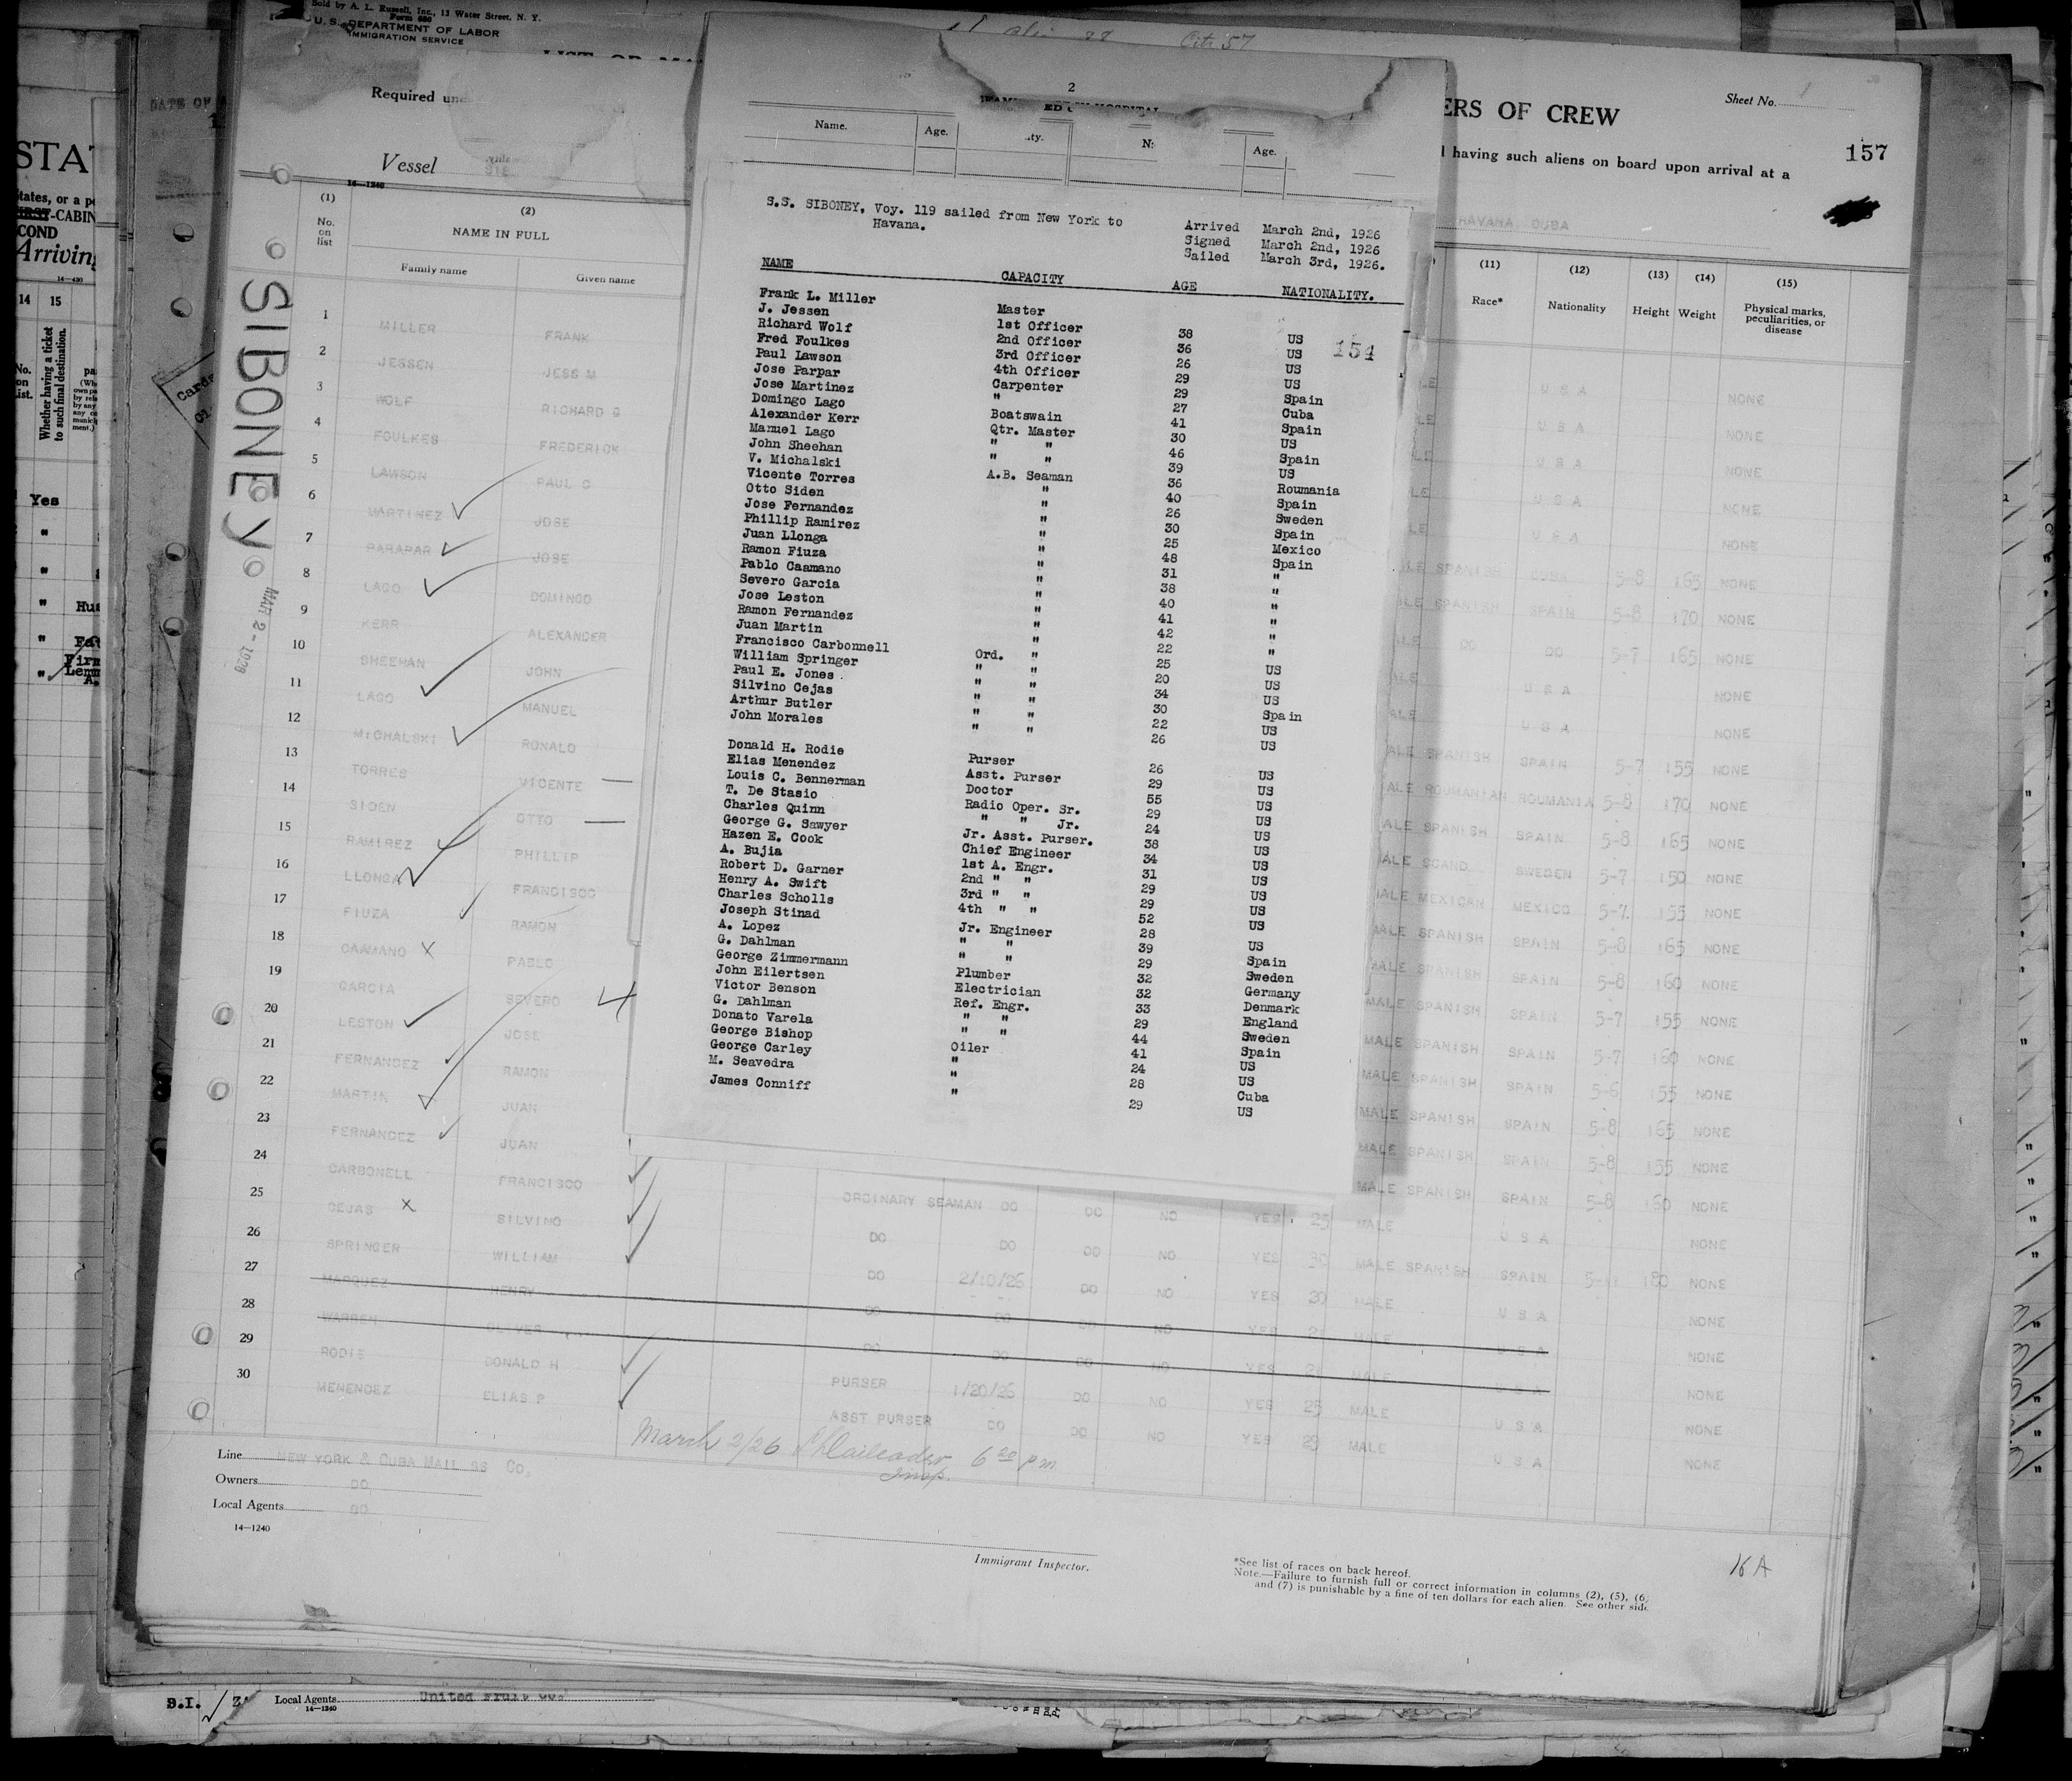 Sold by A. L. Russell, Inc., 13 Water Street, N. Y.
Form 680
U. S. DEPARTMENT OF LABOR
IMMIGRATION SERVICE
Required und
Vessel
14—1240
ERS OF CREW
Sheet No. 1
157
having such aliens on board upon arrival at a
HAVANA CUBA
2
Name. Age. ty. N Age.
S.S. SIBONEY, Voy. 119 sailed from New York to
Havana.
Arrived March 2nd, 1926
Signed March 2nd, 1926
Sailed March 3rd, 1926.
NAME CAPACITY AGE NATIONALITY.
Frank L. Miller Master
J. Jessen 1st Officer 38 US
154
Richard Wolf 2nd Officer 36 US
Fred Foulkes 3rd Officer 26 US
Paul Lawson 4th Officer 29 US
Jose Parpar Carpenter 29 Spain
Jose Martinez " 27 Cuba
Domingo Lago Boatswain 41 Spain
Alexander Kerr Qtr. Master 30 US
Manuel Lago " " 46 Spain
John Sheehan " " 39 US
V. Michalski A.B. Seaman 36 Roumania
Vicente Torres " 40 Spain
Otto Siden " 26 Sweden
Jose Fernandez " 30 Spain
Phillip Ramirez " 25 Mexico
Juan Llonga " 48 Spain
Ramon Fiuza " 31 "
Pablo Caamano " 38 "
Severo Garcia " 40 "
Jose Leston " 41 "
Ramon Fernandez " 42 "
Juan Martin " 22 "
Francisco Carbonnell Ord. " 25 US
William Springer " " 20 US
Paul E. Jones " " 34 US
Silvino Cejas " " 30 Spain
Arthur Butler " " 22 US
John Morales " " 26 US
Donald H. Rodie Purser 26 US
Elias Menendez Asst. Purser 29 US
Louis C. Bennerman Doctor 55 US
T. De Stasio Radio Oper. Sr. 29 US
Charles Quinn " " Jr. 24 US
George G. Sawyer Jr. Asst. Purser. 38 US
Hazen E. Cook Chief Engineer 34 US
A. Bujia 1st A. Engr. 31 US
Robert D. Garner 2nd " " 29 US
Henry A. Swift 3rd " " 29 US
Charles Scholls 4th " " 52 US
Joseph Stinad Jr. Engineer 28 US
A. Lopez " " 39 Spain
G. Dahlman " " 29 Sweden
George Zimmermann Plumber 32 Germany
John Eilertsen Electrician 32 Denmark
Victor Benson Ref. Engr. 33 England
G. Dahlman " " 29 Sweden
Donato Varela " " 44 Spain
George Bishop Oiler 41 US
George Carley " 24 US
M. Seavedra " 28 Cuba
James Conniff " 29 US
SIBONEY
MAR 2 - 1926
(1) (2) (11) (12) (13) (14) (15)
No. on list NAME IN FULL Race* Nationality Height Weight Physical marks, peculiarities, or disease
Family name Given name
1 MILLER FRANK U S A NONE
2 JESSEN JESS M U S A NONE
3 WOLF RICHARD G U S A NONE
4 FOULKES FREDERICK U S A NONE
5 LAWSON PAUL G U S A NONE
6 MARTINEZ JOSE SPANISH CUBA 5-8 165 NONE
7 PARAPAR JOSE SPANISH SPAIN 5-8 170 NONE
8 LAGO DOMINGO DO DO 5-7 165 NONE
9 KERR ALEXANDER U S A NONE
10 SHEEHAN JOHN U S A NONE
11 LAGO MANUEL SPANISH SPAIN 5-7 155 NONE
12 MICHALSKI RONALD ROUMANIAN ROUMANIA 5-8 170 NONE
13 TORRES VICENTE SPANISH SPAIN 5-8 165 NONE
14 SIDEN OTTO SCAND SWEDEN 5-7 150 NONE
15 RAMIREZ PHILLIP MEXICAN MEXICO 5-7 155 NONE
16 LLONGA FRANCISCO SPANISH SPAIN 5-8 165 NONE
17 FIUZA RAMON MALE SPANISH SPAIN 5-8 160 NONE
18 CAAMANO PABLO MALE SPANISH SPAIN 5-7 155 NONE
19 GARCIA SEVERO MALE SPANISH SPAIN 5-7 160 NONE
20 LESTON JOSE MALE SPANISH SPAIN 5-6 155 NONE
21 FERNANDEZ RAMON MALE SPANISH SPAIN 5-8 165 NONE
22 MARTIN JUAN MALE SPANISH SPAIN 5-8 155 NONE
23 FERNANDEZ JUAN MALE SPANISH SPAIN 5-8 160 NONE
24 CARBONELL FRANCISCO ORDINARY SEAMAN DO DO NO YES 25 MALE U S A NONE
25 CEJAS SILVINO DO DO DO NO YES 30 MALE SPANISH SPAIN 180 NONE
26 SPRINGER WILLIAM DO 2/10/26 DO NO YES 30 MALE U S A NONE
27 MARQUEZ HENRY DO DO DO NO YES MALE U S A NONE
28 WARREN OLIVER DO DO DO NO YES MALE U S A NONE
29 RODIE DONALD H PURSER 1/20/26 DO NO YES 25 MALE U S A NONE
30 MENENDEZ ELIAS P ASST PURSER DO DO NO YES 29 MALE U S A NONE
March 2/26 Insp. 6 20 pm
Line NEW YORK & CUBA MAIL SS Co.
Owners DO
Local Agents DO
14—1240
Immigrant Inspector.
*See list of races on back hereof.
Note.—Failure to furnish full or correct information in columns (2), (5), (6)
and (7) is punishable by a fine of ten dollars for each alien. See other side
16 A
STAT
tates, or a p
-CABIN
COND
Arriving
14—430
14 15
Whether having a ticket to such final destination.
No. on List.
Yes
B.I.
Local Agents United Fruit Co.
14—1240